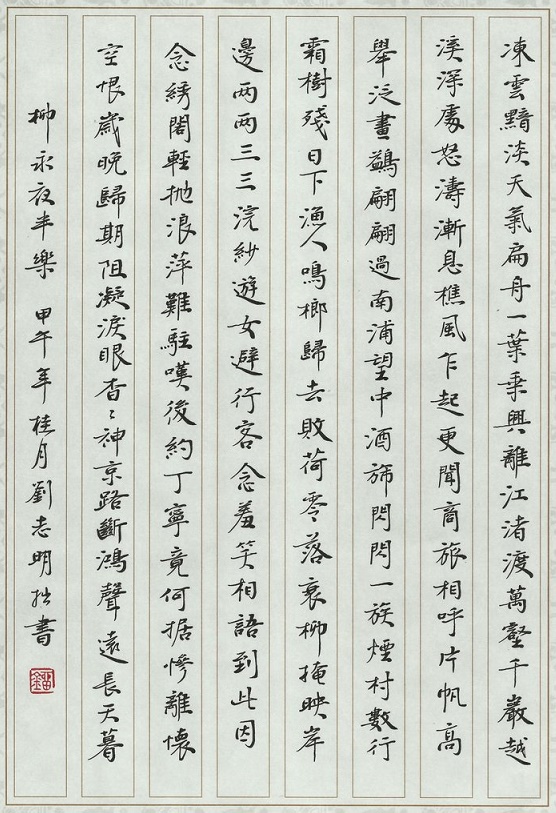 凍雲黯淡天氣扁舟一葉乘興離江渚渡萬壑千巖越
溪深處怒濤漸息樵風乍起更聞商旅相呼片帆高
舉泛畫鷁翩翩過南浦望中酒斾閃閃一族煙村數行
霜樹殘日下漁人鳴榔歸去敗荷零落衰柳掩映岸
邊兩兩三三浣紗遊女避行客念羞笑相語到此因
念綉閣輕抛浪萍難駐嘆後約丁寧竟何据慘離懷
空恨歲晚歸期阻凝淚眼杳〻神京路斷鴻聲遠長天暮
柳永夜半樂 甲午年桂月劉志明拙書